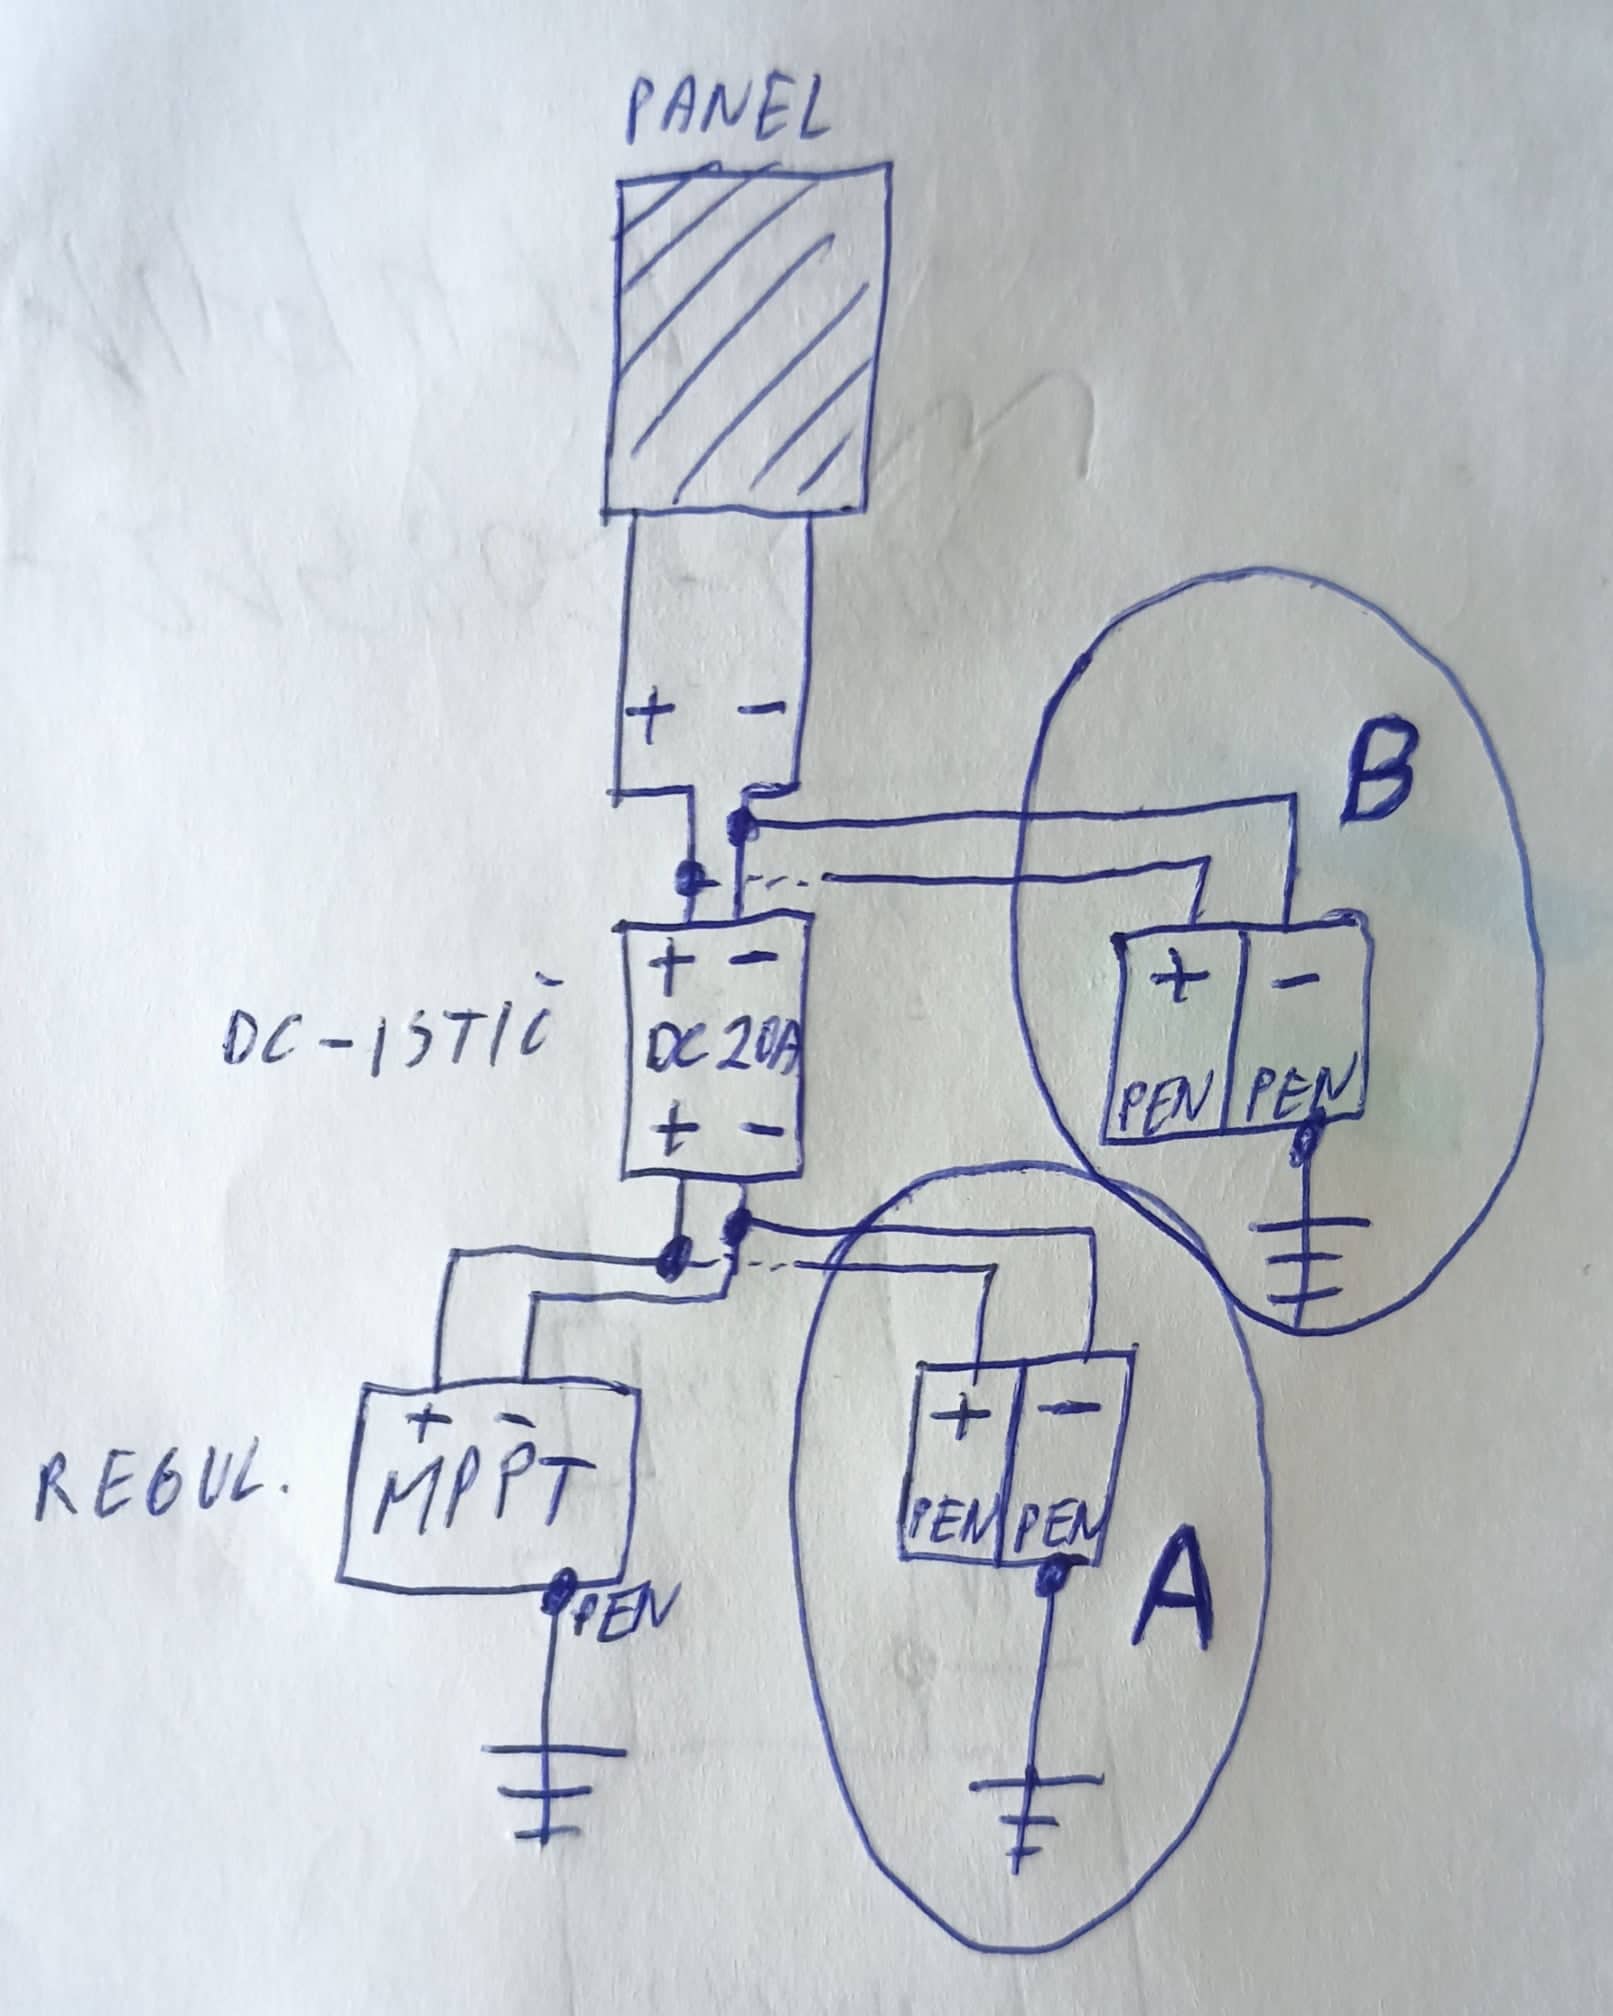 PANEL
+ -
B
+ -
DC-ISTIČ
DC 20A
+ -
PEN PEN
+ -
+ -
REGUL.
MPPT
+ -
PEN PEN
PEN
A